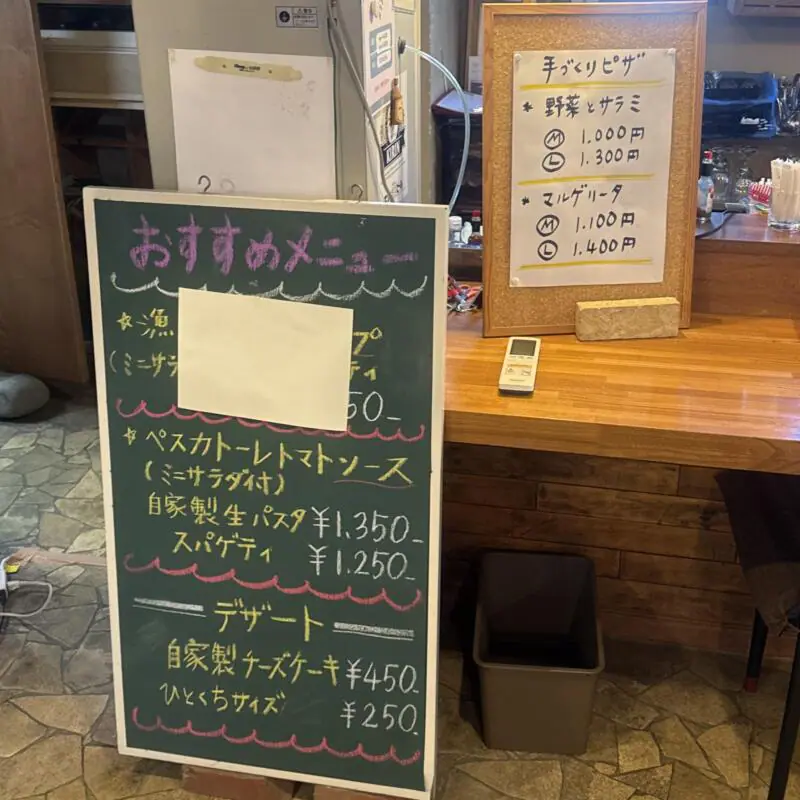 おすすめメニュー
☆漁 プ
(ミニサラ ティ
50-
☆ペスカトーレトマトソース
(ミニサラダ付)
自家製生パスタ ¥1.350-
スパゲティ ¥1.250-
デザート
自家製チーズケーキ ¥450.
ひとくちサイズ ¥250.
手づくりピザ
* 野菜とサラミ
Ⓜ 1.000円
Ⓛ 1.300円
* マルゲリータ
Ⓜ 1.100円
Ⓛ 1.400円